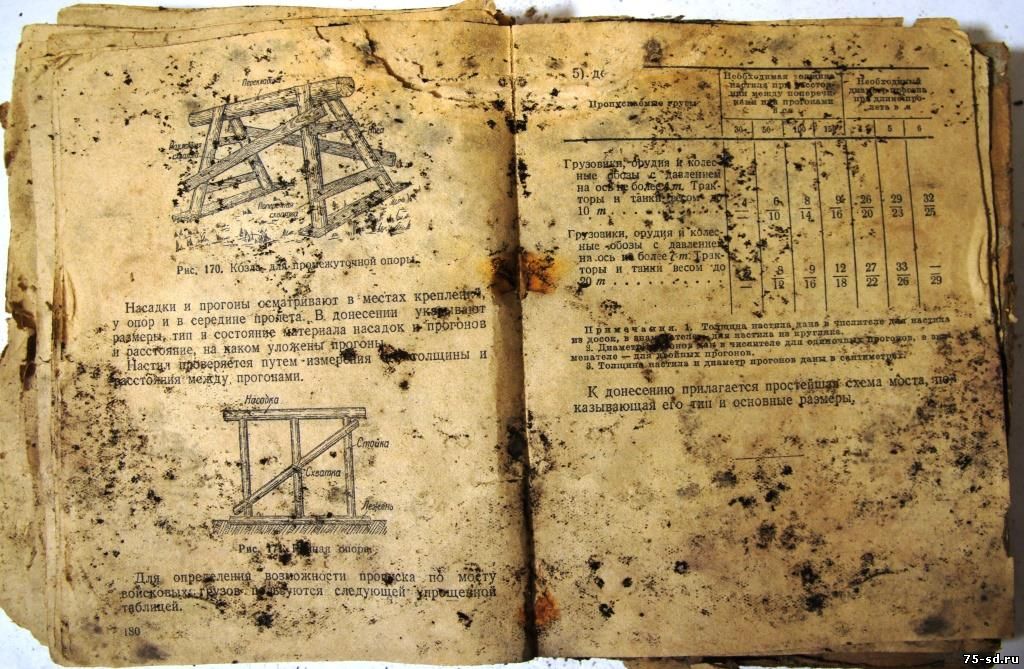 Перекладина
Нога
схватка
Поперечная
схватка
Рис. 170. Козлы для промежуточной опоры.
Насадки и прогоны осматривают в местах креплений,
у опор и в середине пролета. В донесении указывают
размеры, тип и состояние материала насадок и прогонов
и расстояние, на каком уложены прогоны.
Настил проверяется путем измерения его толщины и
расстояния между прогонами.
Насадка
Стойка
Схватка
Лежень
Рис. 171. Рамная опора.
Для определения возможности пропуска по мосту
войсковых грузов пользуются следующей упрощенной
таблицей.
180
5).
Пропускаемые грузы
Необходимая толщина
настила при расстоя-
нии между поперечи-
нами или прогонами
в см
Необходимый
диаметр прогона
при длине про-
лета в м
30 50 100 150 4 5 6
Грузовики, орудия и колес-
ные обозы с давлением
на ось не более т. Трак-
торы и танки весом до
10 т
6 8 9 26 29 32
10 14 16 20 23 25
Грузовики, орудия и колес-
ные обозы с давлением
на ось не более 7 т. Трак-
торы и танки весом до
20 т
8 9 12 27 33 —
12 16 18 22 26 29
Примечания. 1. Толщина настила дана в числителе для настила
из досок, в знаменателе — для настила из кругляка.
2. Диаметр прогонов дан в числителе для одиночных прогонов, в зна-
менателе — для двойных прогонов.
3. Толщина настила и диаметр прогонов даны в сантиметрах.
К донесению прилагается простейшая схема моста, по-
казывающая его тип и основные размеры,
75-sd.ru